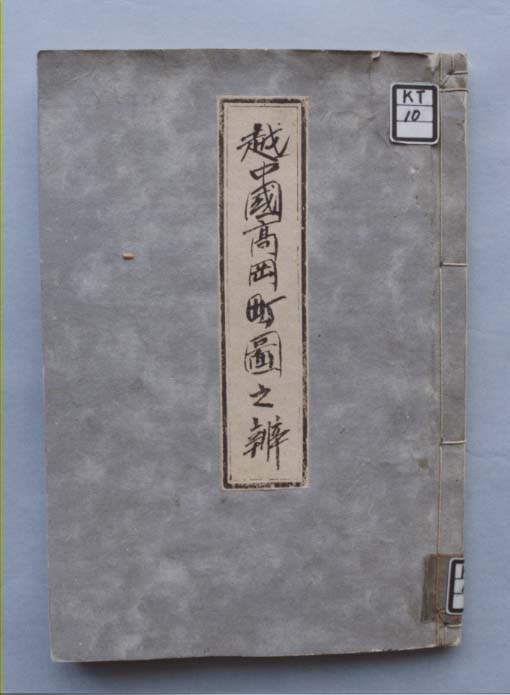 越中國高岡町圖之辨
KT
10